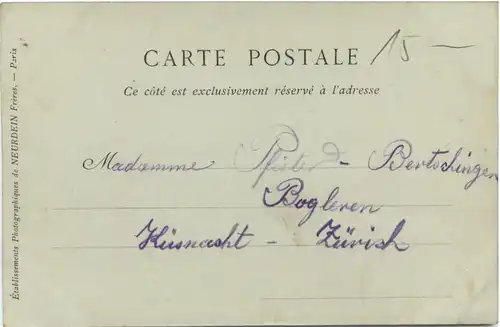 CARTE POSTALE
15 —
Ce côté est exclusivement réservé à l'adresse
Madamme Pfister - Bertschinger
Bogleren
Küsnacht - Zürich
Établissements Photographiques de NEURDEIN Frères. — Paris